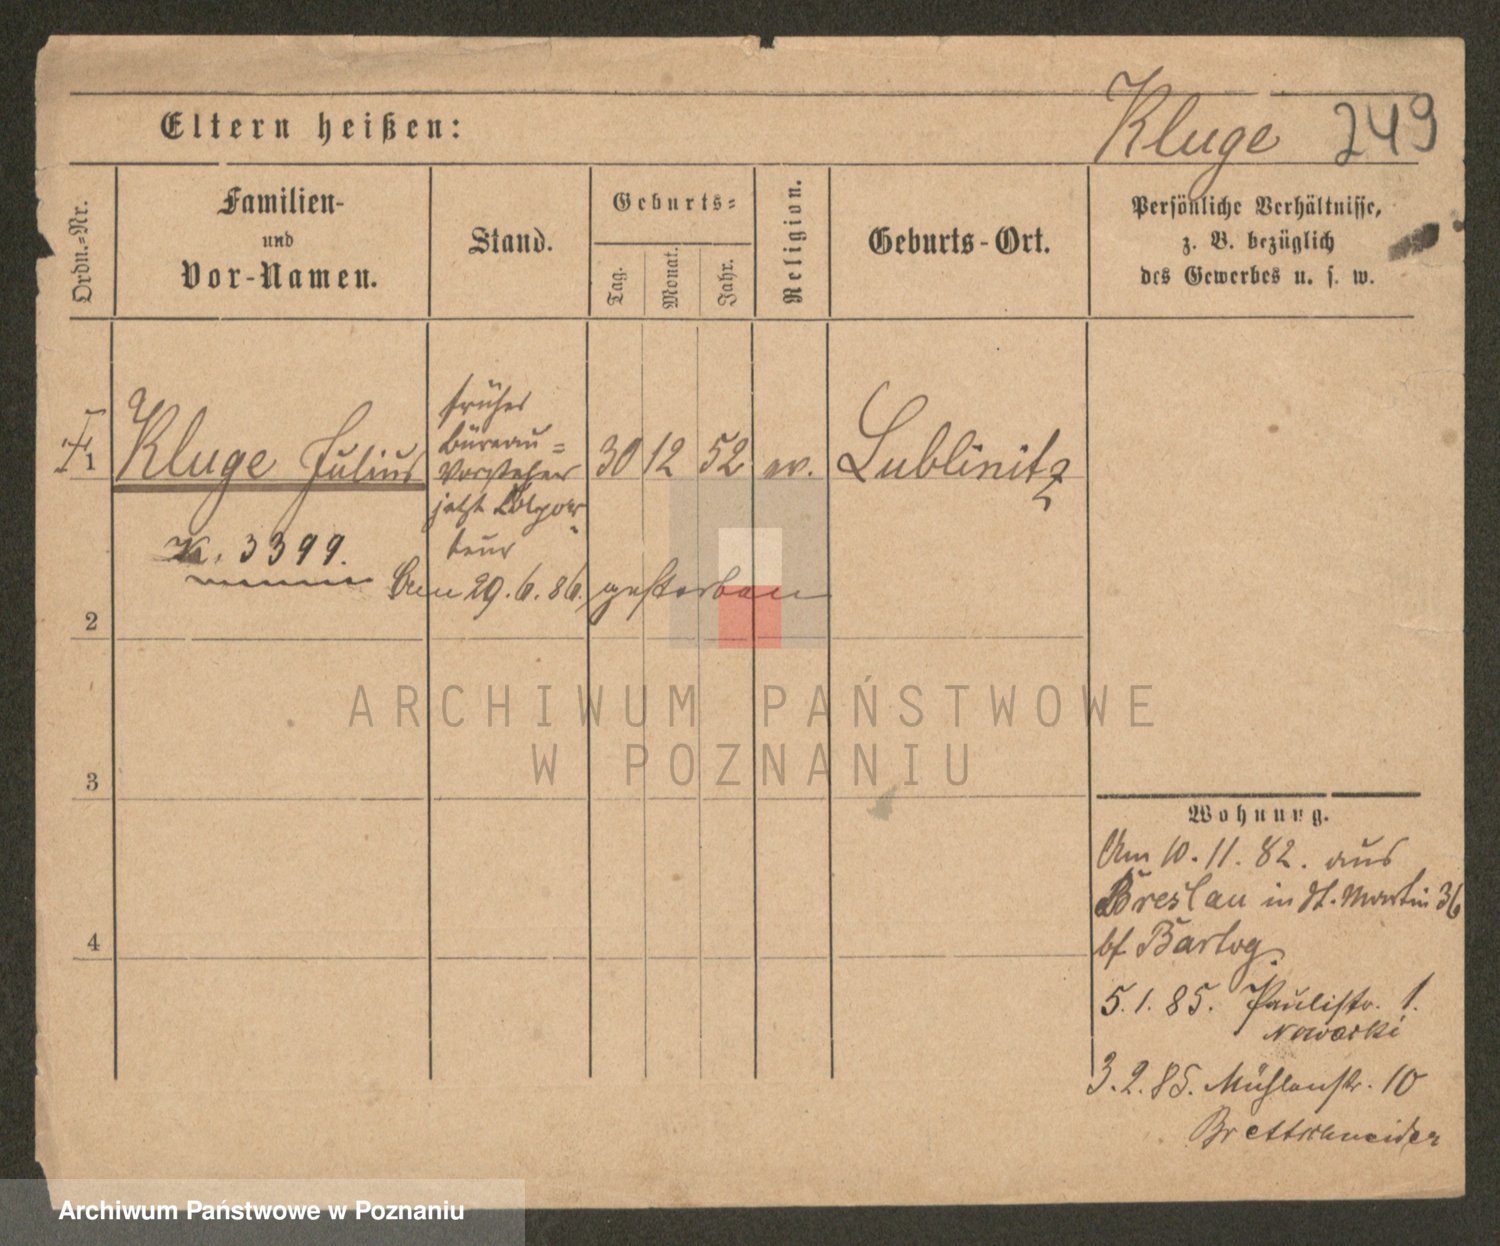 Kluge 249
Eltern heißen:
Ordn.-Nr.
Familien-
und
Vor-Namen.
Stand.
Geburts-
Tag.
Monat.
Jahr.
Religion.
Geburts-Ort.
Persönliche Verhältnisse,
z. B. bezüglich
des Gewerbes u. s. w.
1 Kluge Julius
früher
Büreau-
Vorsteher
jetzt Colpor-
teur
30 12 52 ev. Lublinitz
K. 3399.
Am 29.6.86. gestorben
2
3
4
ARCHIWUM PAŃSTWOWE
W POZNANIU
Wohnung.
Am 10.11.82. aus
Breslau in St. Martin 36
bf Bartog.
5.1.85. Paulistr. 1.
Nowacki
3.2.85. Mühlenstr. 10
Brettschneider
Archiwum Państwowe w Poznaniu